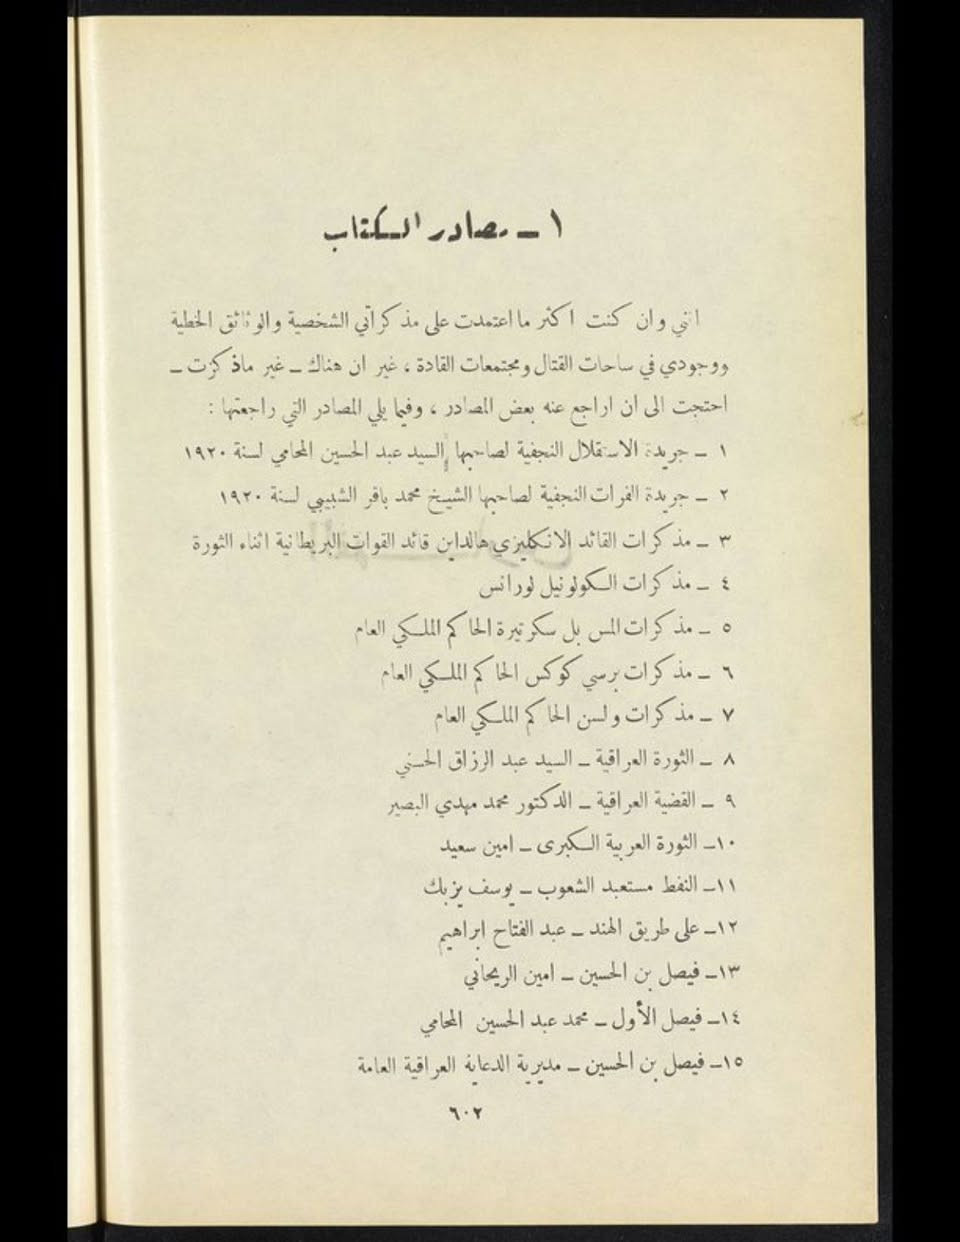 ١ ـ مصادر الكتاب
انني وان كنت اكثر ما اعتمدت على مذكرآتي الشخصية والوثائق الخطية
ووجودي في ساحات القتال ومجتمعات القادة ، غير ان هناك ـ غير ماذكرت ـ
احتجت الى ان اراجع عنه بعض المصادر ، وفيما يلي المصادر التي راجعتها :
١ ـ جريدة الاستقلال النجفية لصاحبها السيد عبد الحسين المحامي لسنة ١٩٢٠
٢ ـ جريدة الفرات النجفية لصاحبها الشيخ محمد باقر الشبيبي لسنة ١٩٢٠
٣ ـ مذكرات القائد الانكليزي هالداين قائد القوات البريطانية اثناء الثورة
٤ ـ مذكرات الكولونيل لورانس
٥ ـ مذكرات المس بل سكرتيرة الحاكم الملكي العام
٦ ـ مذكرات برسي كوكس الحاكم الملكي العام
٧ ـ مذكرات ولسن الحاكم الملكي العام
٨ ـ الثورة العراقية ـ السيد عبد الرزاق الحسني
٩ ـ القضية العراقية ـ الدكتور محمد مهدي البصير
١٠ـ الثورة العربية الكبرى ـ امين سعيد
١١ـ النفط مستعبد الشعوب ـ يوسف يزبك
١٢ـ على طريق الهند ـ عبد الفتاح ابراهيم
١٣ـ فيصل بن الحسين ـ امين الريحاني
١٤ـ فيصل الأول ـ محمد عبد الحسين المحامي
١٥ـ فيصل بن الحسين ـ مديرية الدعاية العراقية العامة
٦٠٢